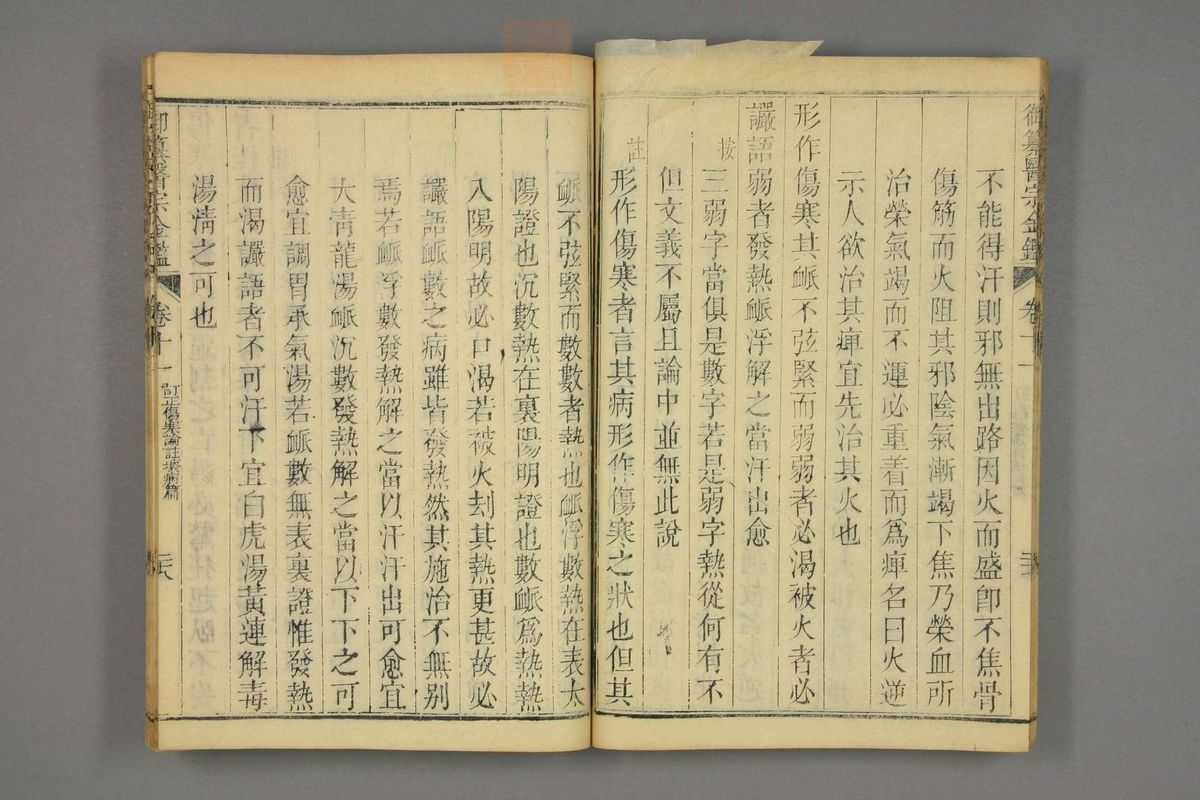 御纂醫宗金鑑 卷十一
不能得汗則邪無出路因火而盛卽不焦骨
傷筋而火阻其邪陰氣漸竭下焦乃榮血所
治榮氣竭而不運必重着而爲痺名曰火逆
示人欲治其痺宜先治其火也
形作傷寒其脈不弦緊而弱弱者必渴被火者必
讝語弱者發熱脈浮解之當汗出愈
按
三弱字當俱是數字若是弱字熱從何有不
但文義不屬且論中並無此說
註
形作傷寒者言其病形作傷寒之狀也但其
脈不弦緊而數數者熱也脈浮數熱在表太
陽證也沉數熱在裏陽明證也數脈爲熱熱
入陽明故必口渴若被火刦其熱更甚故必
讝語脈數之病雖皆發熱然其施治不無别
焉若脈浮數發熱解之當以汗汗出可愈宜
大青龍湯脈沉數發熱解之當以下下之可
愈宜調胃承氣湯若脈數無表裏證惟發熱
而渴讝語者不可汗下宜白虎湯黃連解毒
湯清之可也
御纂醫宗金鑑 卷十一 訂正傷寒論註壞病篇